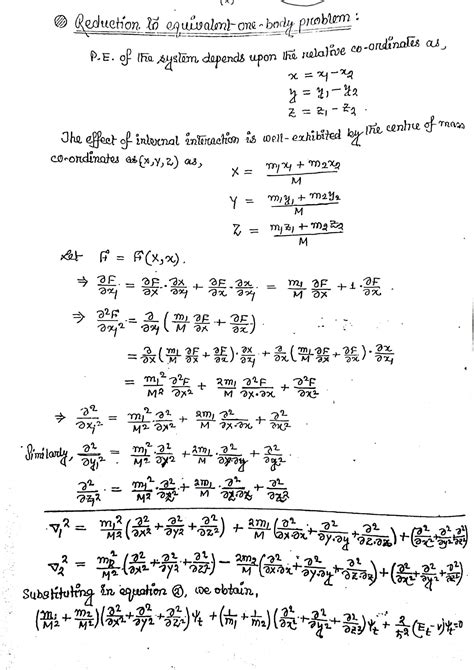 (x)
Reduction to equivalent one-body problem:
P.E. of the system depends upon the relative co-ordinates as,
x = x₁-x₂
y = y₁-y₂
z = z₁-z₂.
The effect of internal interaction is well-exhibited by the centre of mass
co-ordinates as (X,Y,Z) as,
X = (m₁x₁ + m₂x₂)/M
Y = (m₁y₁ + m₂y₂)/M
Z = (m₁z₁ + m₂z₂)/M
Let F = F(X,x).
⇒ ∂F/∂x₁ = ∂F/∂X · ∂X/∂x₁ + ∂F/∂x · ∂x/∂x₁ = m₁/M ∂F/∂X + 1·∂F/∂x
⇒ ∂²F/∂x₁² = ∂/∂x₁ (m₁/M ∂F/∂X + ∂F/∂x)
= ∂/∂X (m₁/M ∂F/∂X + ∂F/∂x) · ∂X/∂x₁ + ∂/∂x (m₁/M ∂F/∂X + ∂F/∂x) · ∂x/∂x₁
= m₁²/M² ∂²F/∂X² + 2m₁/M ∂²F/∂X·∂x + ∂²F/∂x²
⇒ ∂²/∂x₁² = m₁²/M² · ∂²/∂X² + 2m₁/M ∂²/∂X·∂x + ∂²/∂x²
Similarly, ∂²/∂y₁² = m₁²/M² · ∂²/∂Y² + 2m₁/M · ∂²/∂Y·∂y + ∂²/∂y²
∂²/∂z₁² = m₁²/M² · ∂²/∂Z² + 2m₁/M · ∂²/∂Z·∂z + ∂²/∂z²
∇₁² = m₁²/M² (∂²/∂X² + ∂²/∂Y² + ∂²/∂Z²) + 2m₁/M (∂²/∂X·∂x + ∂²/∂Y·∂y + ∂²/∂Z·∂z) + (∂²/∂x² + ∂²/∂y² + ∂²/∂z²)
∇₂² = m₂²/M² (∂²/∂X² + ∂²/∂Y² + ∂²/∂Z²) - 2m₂/M (∂²/∂X·∂x + ∂²/∂Y·∂y + ∂²/∂Z·∂z) + (∂²/∂x² + ∂²/∂y² + ∂²/∂z²)
Substituting in equation ②, we obtain,
(m₁/M² + m₂/M²)(∂²/∂X² + ∂²/∂Y² + ∂²/∂Z²)Ψₜ + (1/m₁ + 1/m₂)(∂²/∂x² + ∂²/∂y² + ∂²/∂z²)Ψₜ + 2/ħ² (Eₜ-V)Ψₜ=0